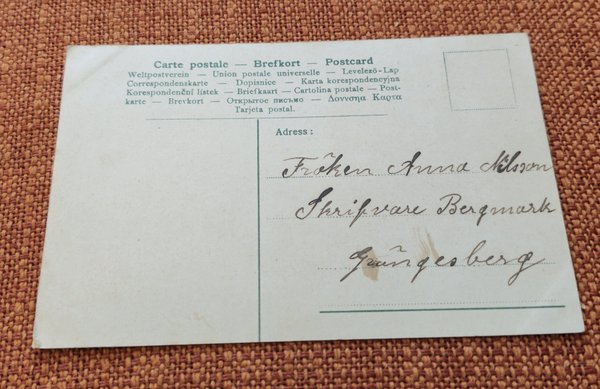 Carte postale — Brefkort — Postcard
Weltpostverein — Union postale universelle — Levelező-Lap
Correspondenskarte — Dopisnice — Karta korespondencyjna
Korespondenční lístek — Briefkaart — Cartolina postale — Post-
karte — Brevkort — Открытое письмо — Δονυσηα Καρτα
Tarjeta postal.
Adress:
Fröken Anna Nilsson
Skrifvare Bergmark
Grängesberg